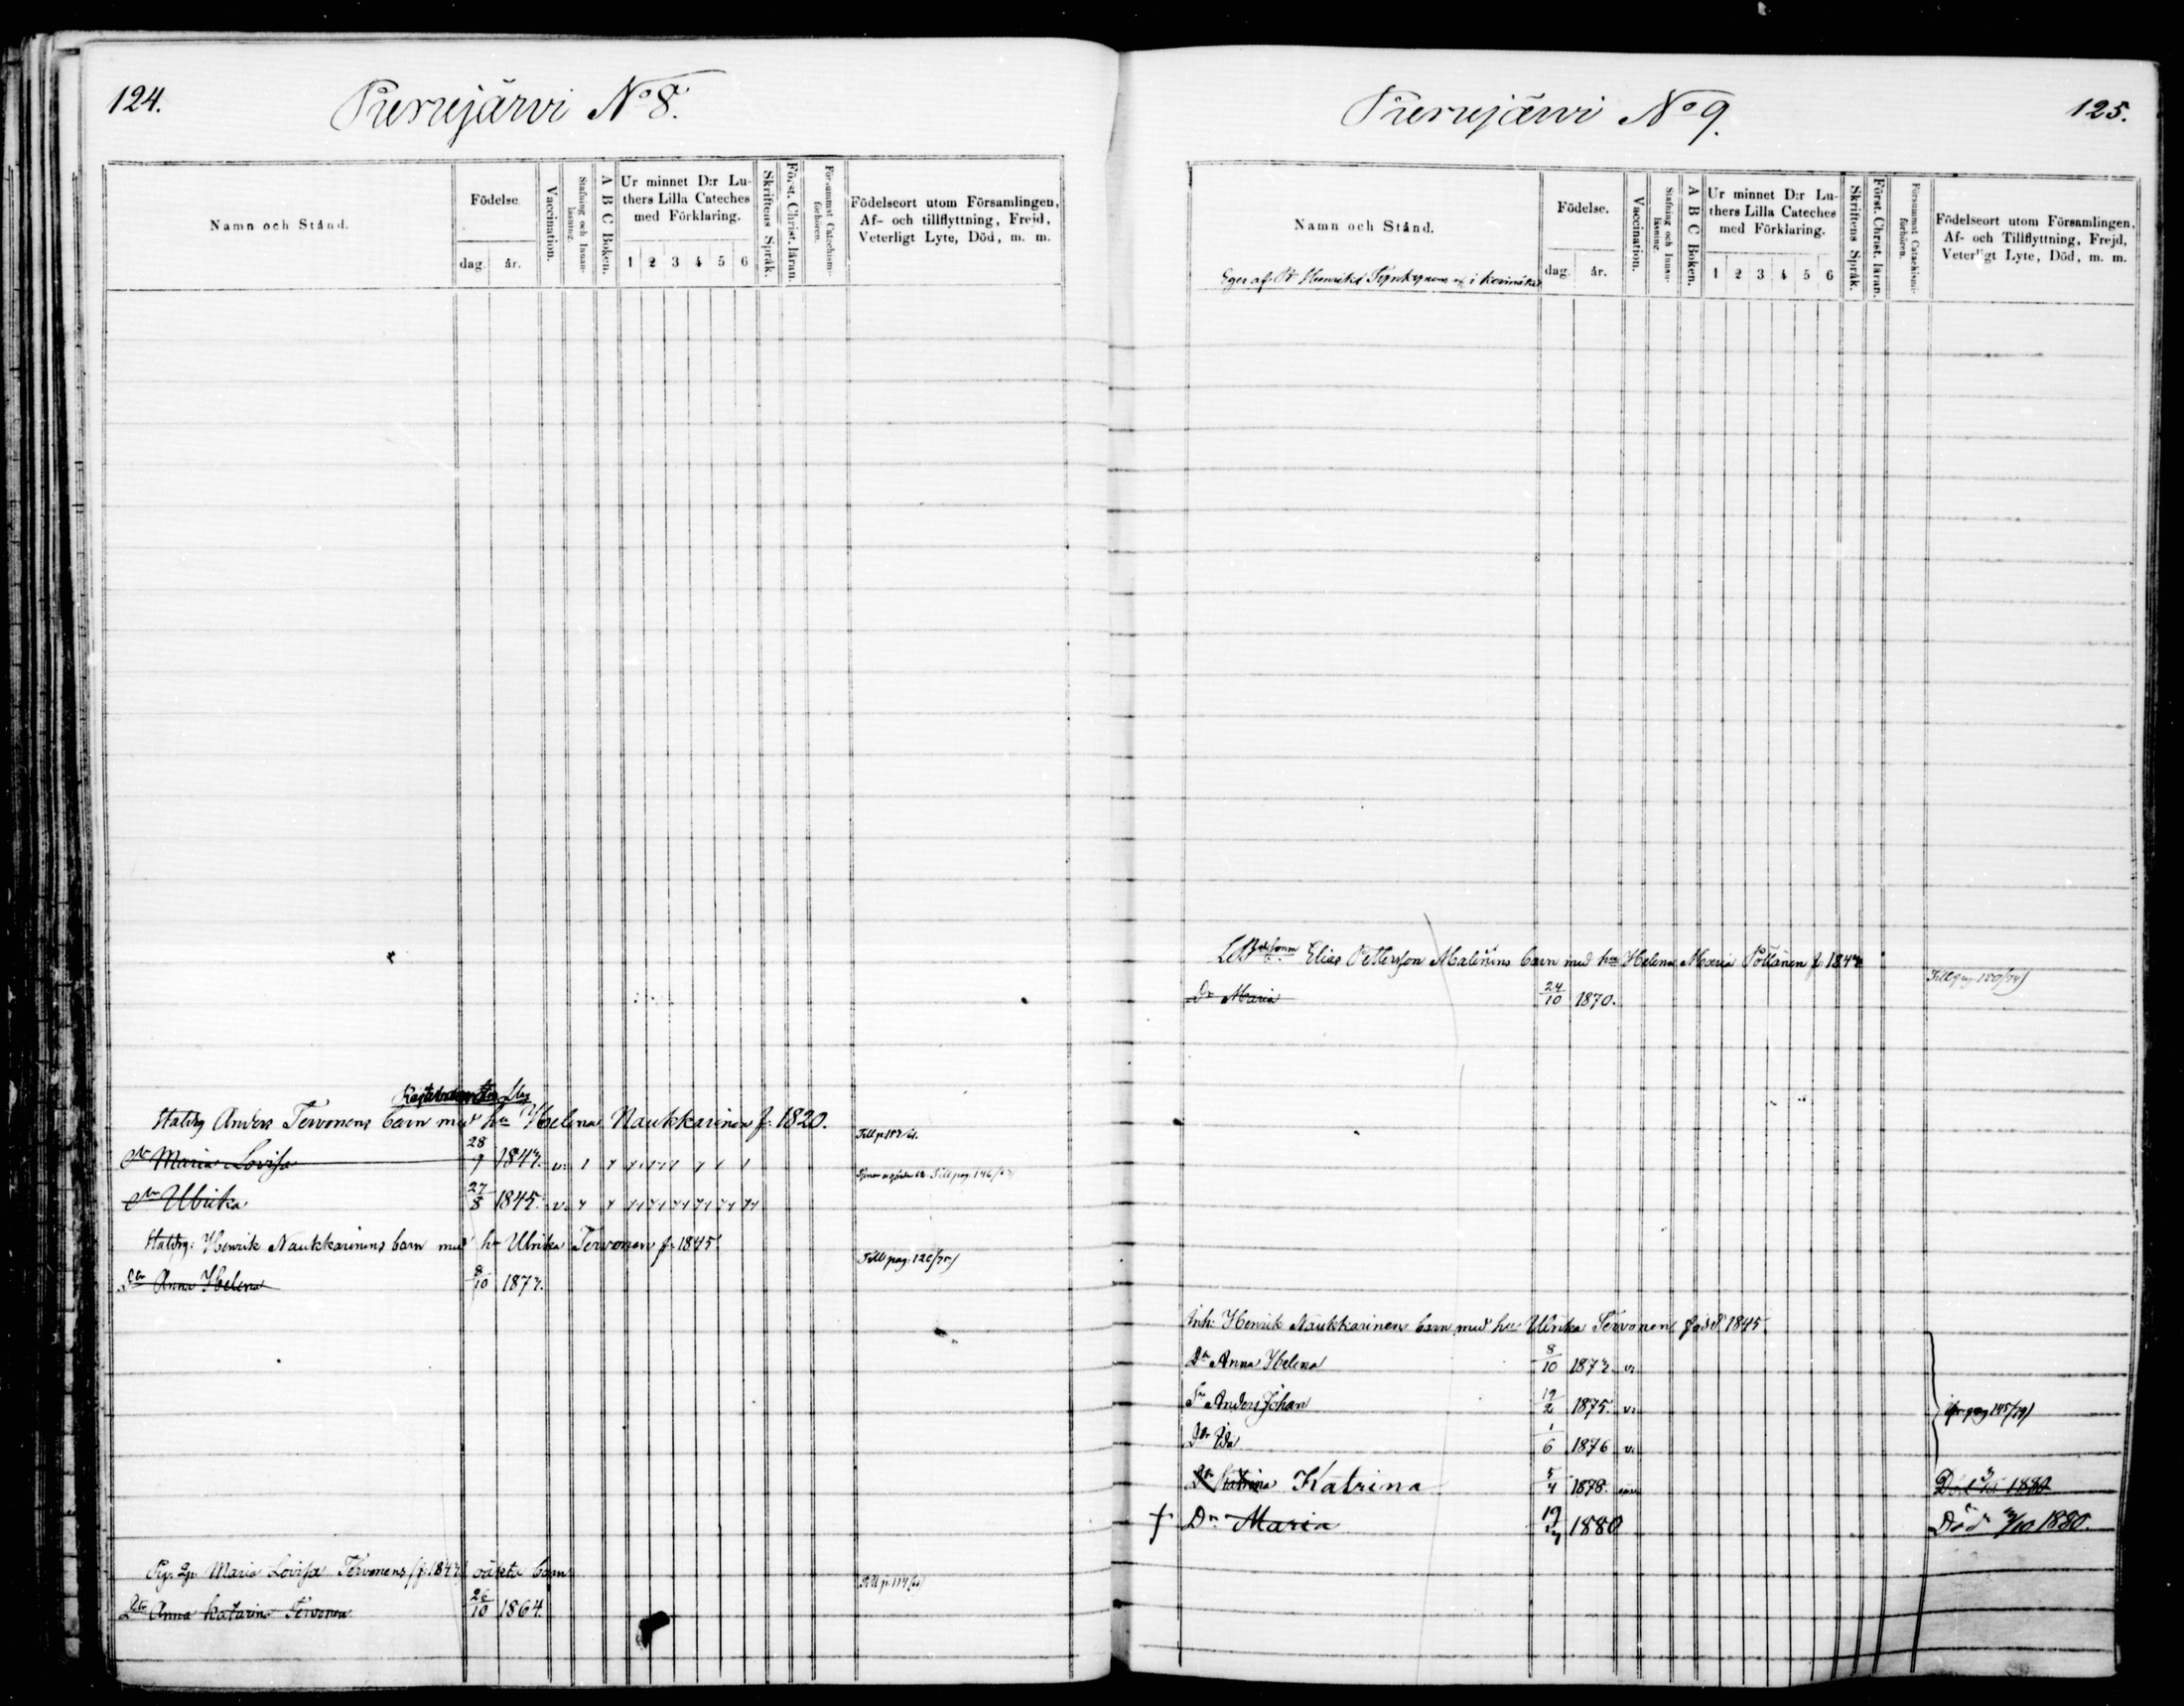 124.
Purnujärvi No 8.
Namn och Stånd.
Födelse.
dag. år.
Vaccination.
Stafning och Innanläsning.
A B C Boken.
Ur minnet D:r Luthers Lilla Cateches med Förklaring.
1 2 3 4 5 6
Skriftens Språk.
Först. Christ. läran.
Försummat Catechismi-förhören.
Födelseort utom Församlingen,
Af- och tillflyttning, Freid,
Veterligt Lyte, Död, m. m.
Anders Tervonens barn med hu Helena Naukkarinen f. 1820.
Dr Maria Lovisa 28/9 1842. v.
Dr Ulrika 27/8 1845. v. Till pag. 146/
Henrik Naukkarinens barn med hu Ulrika Tervonen f. 1845
Dr Anna Helena 8/10 1872. Till pag. 126/75)
Maria Lovisa Tervonens (f. 1842) oäkta barn
Dr Anna Katarina Tervonen 26/10 1864. Till p. 114/
125.
Purnujärvi No 9.
Namn och Stånd.
Eger af i
Födelse.
dag. år.
Vaccination.
Stafning och Innanläsning.
A B C Boken.
Ur minnet D:r Luthers Lilla Cateches med Förklaring.
1 2 3 4 5 6
Skriftens Språk.
Först. Christ. läran.
Försummat Catechismi-förhören.
Födelseort utom Församlingen,
Af- och Tillflyttning, Frejd,
Veterligt Lyte, Död, m. m.
Elias Pettersson Malinens barn med hu Helena Maria Pöllänen f. 1842
Dr Maria 24/10 1870. Till pag 150/74)
Inh: Henrik Naukkarinens barn med hu Ulrika Tervonen född 1845.
Dr Anna Helena 8/10 1872. v.
Sn Anders Johan 12/2 1875. v. pag 145/79)
Dr Ida 1/6 1876 v.
Dr Katrina Katrina 5/4 1878. Död 1880
† Dr Maria 1880 Död 1880.